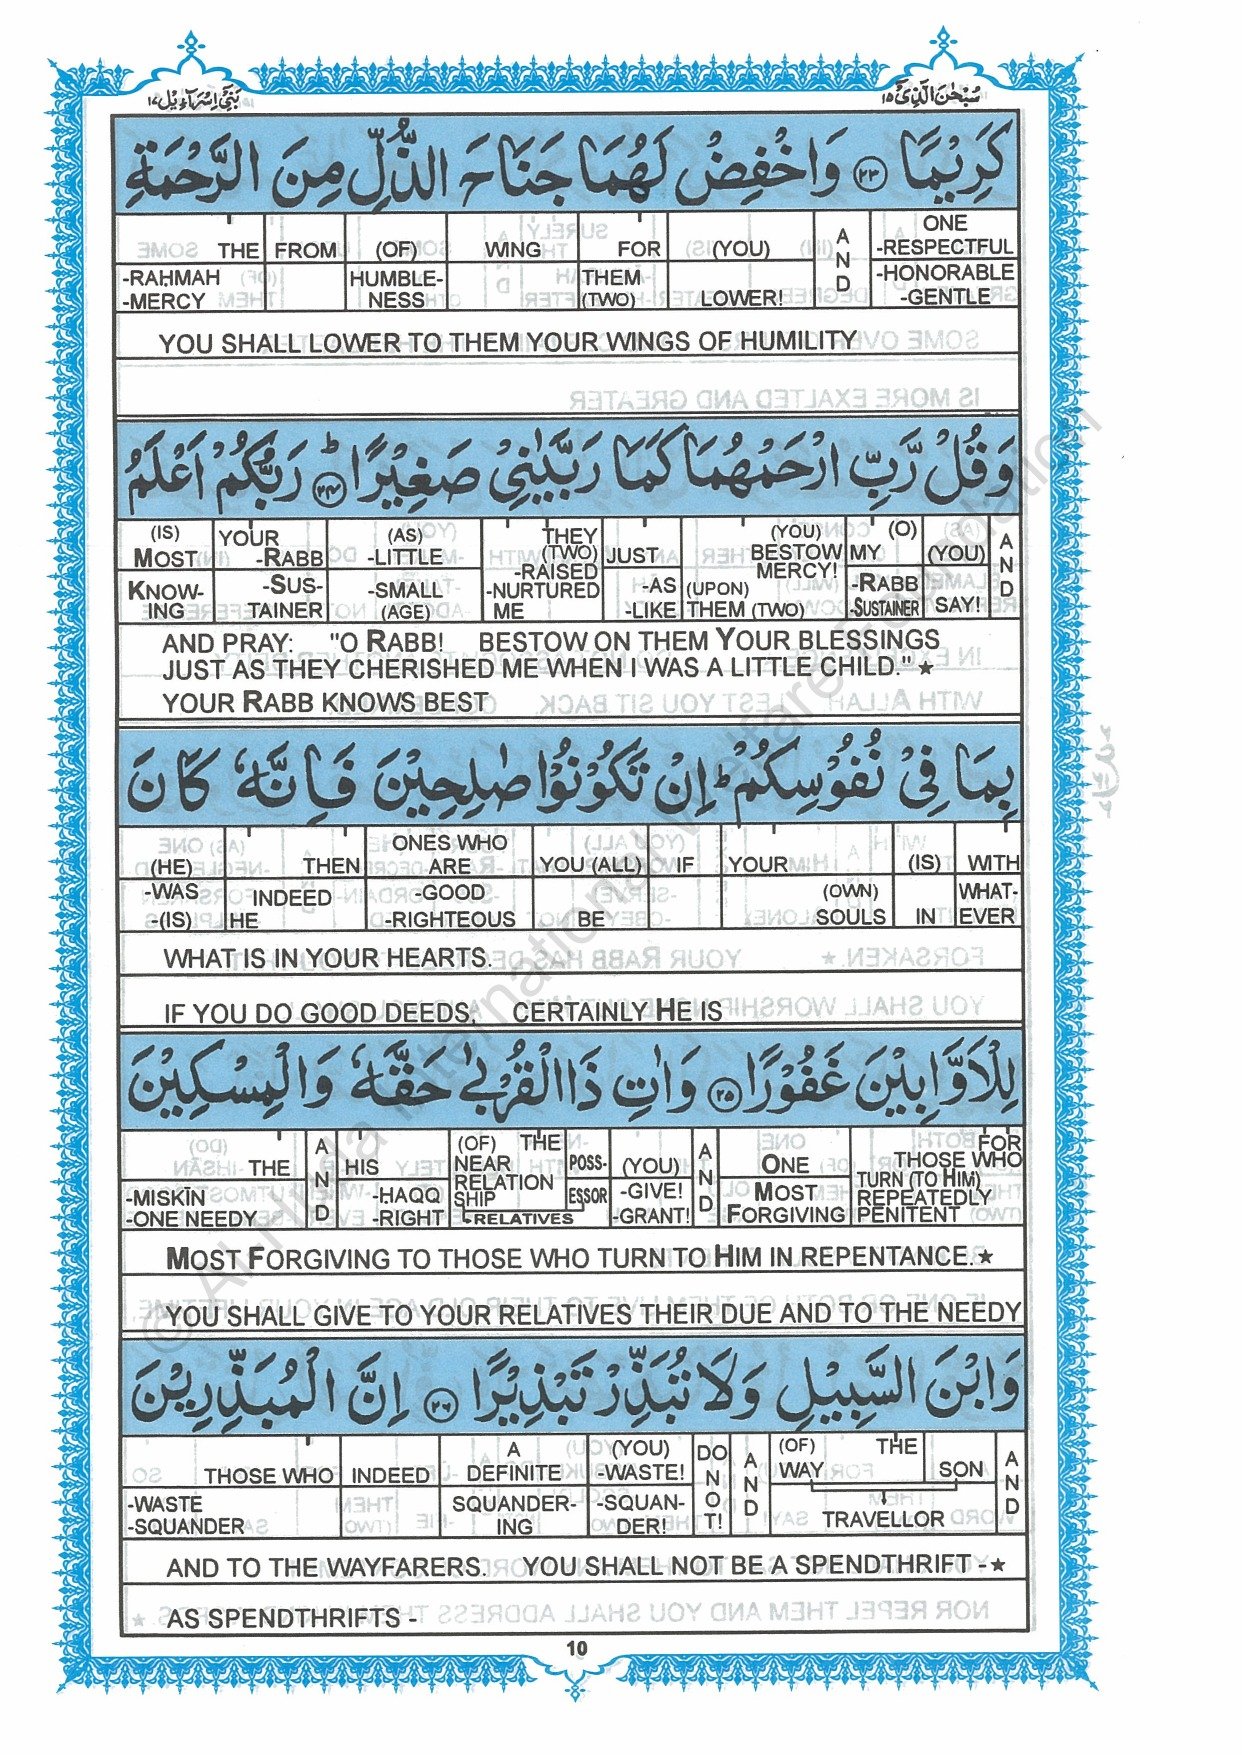 بَنِيْ اِسْرَآءِيْل ١٧
سُبْحٰنَ الَّذِيْ ١٥
كَرِيْمًا ٢٣ وَاخْفِضْ لَهُمَا جَنَاحَ الذُّلِّ مِنَ الرَّحْمَةِ
THE FROM (OF) WING FOR (YOU) AND ONE -RESPECTFUL
-RAḤMAH -MERCY HUMBLE-NESS THEM (TWO) LOWER! -HONORABLE -GENTLE
YOU SHALL LOWER TO THEM YOUR WINGS OF HUMILITY
وَقُلْ رَّبِّ ارْحَمْهُمَا كَمَا رَبَّيٰنِيْ صَغِيْرًا ٢٤ ط رَبُّكُمْ اَعْلَمُ
(IS) MOST YOUR -RABB (AS) -LITTLE THEY (TWO) -RAISED JUST (YOU) BESTOW MERCY! MY (O) (YOU) AND
KNOW-ING -SUS-TAINER -SMALL (AGE) -NURTURED ME -AS -LIKE (UPON) THEM (TWO) -RABB -SUSTAINER SAY!
AND PRAY: "O RABB! BESTOW ON THEM YOUR BLESSINGS
JUST AS THEY CHERISHED ME WHEN I WAS A LITTLE CHILD." ★
YOUR RABB KNOWS BEST
بِمَا فِيْ نُفُوْسِكُمْ ط اِنْ تَكُوْنُوْا صٰلِحِيْنَ فَاِنَّهٗ كَانَ
(HE) THEN ONES WHO ARE YOU (ALL) IF YOUR (IS) WITH
-WAS -(IS) INDEED HE -GOOD -RIGHTEOUS BE (OWN) SOULS IN WHAT-EVER
WHAT IS IN YOUR HEARTS.
IF YOU DO GOOD DEEDS, CERTAINLY HE IS
لِلْاَوَّابِيْنَ غَفُوْرًا ٢٥ وَاٰتِ ذَا الْقُرْبٰى حَقَّهٗ وَالْمِسْكِيْنَ
THE AND HIS (OF) THE NEAR RELATION SHIP POSS- (YOU) AND ONE FOR THOSE WHO
-MISKĪN -ONE NEEDY -HAQQ -RIGHT RELATIVES ESSOR -GIVE! -GRANT! MOST FORGIVING TURN (TO HIM) REPEATEDLY PENITENT
MOST FORGIVING TO THOSE WHO TURN TO HIM IN REPENTANCE. ★
YOU SHALL GIVE TO YOUR RELATIVES THEIR DUE AND TO THE NEEDY
وَابْنَ السَّبِيْلِ وَلَا تُبَذِّرْ تَبْذِيْرًا ٢٦ اِنَّ الْمُبَذِّرِيْنَ
THOSE WHO INDEED A DEFINITE (YOU) -WASTE! DO NOT! AND (OF) THE WAY SON AND
-WASTE -SQUANDER SQUANDER-ING -SQUAN-DER! TRAVELLOR
AND TO THE WAYFARERS. YOU SHALL NOT BE A SPENDTHRIFT - ★
AS SPENDTHRIFTS -
10
© Al-Huda International Welfare Foundation